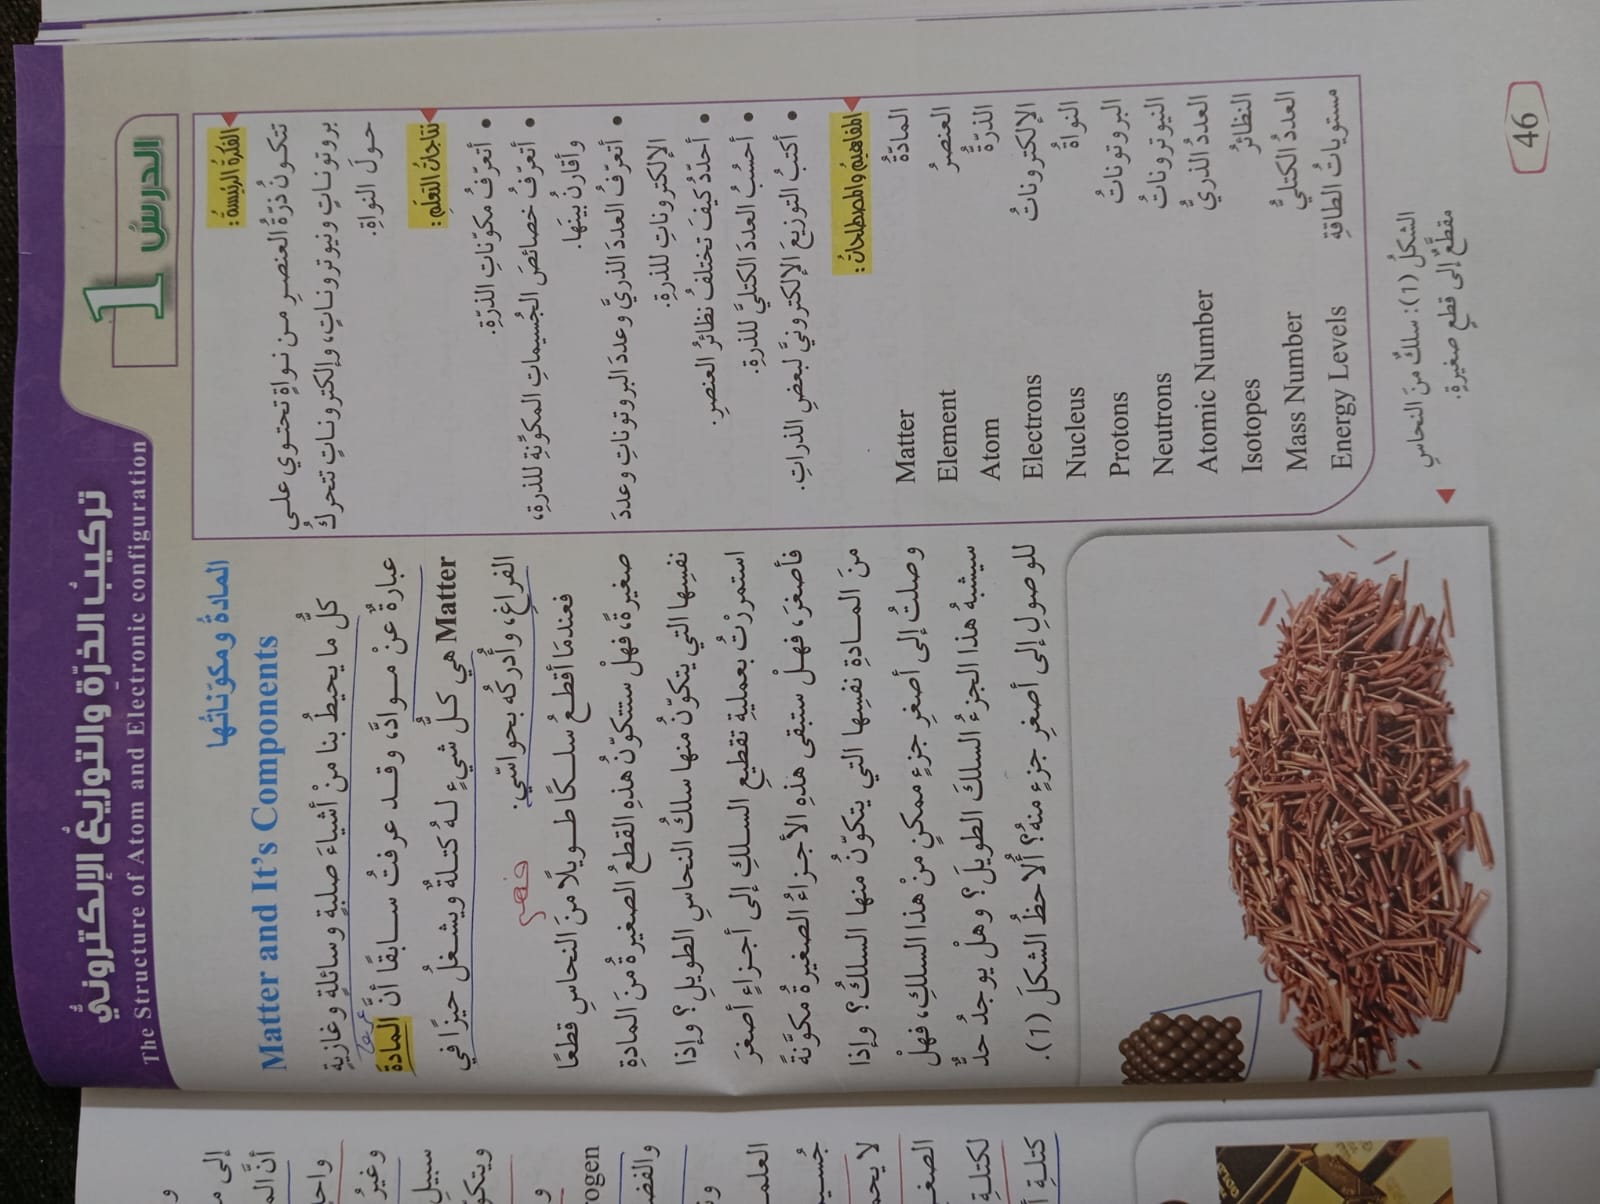 الدرسُ 1
تركيبُ الذرّةِ والتوزيعُ الإلكترونيُّ
The Structure of Atom and Electronic configuration
الفكرةُ الرئيسةُ:
تتكونُ ذرّةُ العنصرِ من نواةٍ تحتوي على
بروتوناتٍ ونيوتروناتٍ، وإلكتروناتٍ تتحركُ
حولَ النواةِ.
نتاجاتُ التعلّمِ:
• أتعرّفُ مكوّناتِ الذرّةِ.
• أتعرّفُ خصائصَ الجُسيماتِ المكوِّنةِ للذرةِ،
وأقارنُ بينَها.
• أتعرّفُ العددَ الذريَّ وعددَ البروتوناتِ وعددَ
الإلكتروناتِ للذرةِ.
• أحدّدُ كيفَ تختلفُ نظائرُ العنصرِ.
• أحسُبُ العددَ الكتليَّ للذرةِ.
• أكتبُ التوزيعَ الإلكترونيَّ لبعضِ الذراتِ.
المفاهيمُ والمصطلحاتُ:
المادّةُ Matter
العنصرُ Element
الذرّةُ Atom
الإلكتروناتُ Electrons
النواةُ Nucleus
البروتوناتُ Protons
النيوتروناتُ Neutrons
العددُ الذريُّ Atomic Number
النظائرُ Isotopes
العددُ الكتليُّ Mass Number
مستوياتُ الطاقةِ Energy Levels
المادةُ ومكوّناتُها
Matter and It's Components
كلُّ ما يحيطُ بنا منْ أشياءَ صلبةٍ وسائلةٍ وغازيةٍ
عبارةٌ عنْ موادَّ، وقد عرفتُ سابقًا أنَّ المادةَ
Matter هي كلُّ شيءٍ لهُ كتلةٌ ويشغلُ حيزًا في
الفراغِ، وأُدركُه بحواسّي.
فعندمَا أقطعُ سلكًا طويلًا منَ النحاسِ قطعًا
صغيرةً، فهلْ ستتكوّنُ هٰذِهِ القطعُ الصغيرةُ منَ المادةِ
نفسِها التي يتكوّنُ منها سلكُ النحاسِ الطويلِ؟ وإذا
استمررْتُ بعمليةِ تقطيعِ السلكِ إلى أجزاءٍ أصغرَ
فأصغرَ، فهلْ ستبقى هٰذِهِ الأجزاءُ الصغيرةُ مكوّنةً
منَ المادةِ نفسِها التي يتكوّنُ منها السلكُ؟ وإذا
وصلتُ إلى أصغرِ جزءٍ ممكنٍ منْ هذا السلكِ، فهلْ
سيشبهُ هذا الجزءُ السلكَ الطويلَ؟ وهلْ يوجدُ حدٌّ
للوصولِ إلى أصغرِ جزءٍ منهُ؟ ألاحظُ الشكلَ (1).
الشكلُ (1): سلكٌ منَ النحاسِ
مقطَّعٌ إلى قطعٍ صغيرةٍ.
46
إلى
أنَّ
سبيل
ogen
العلم
لا
الصغ
كتلةِ